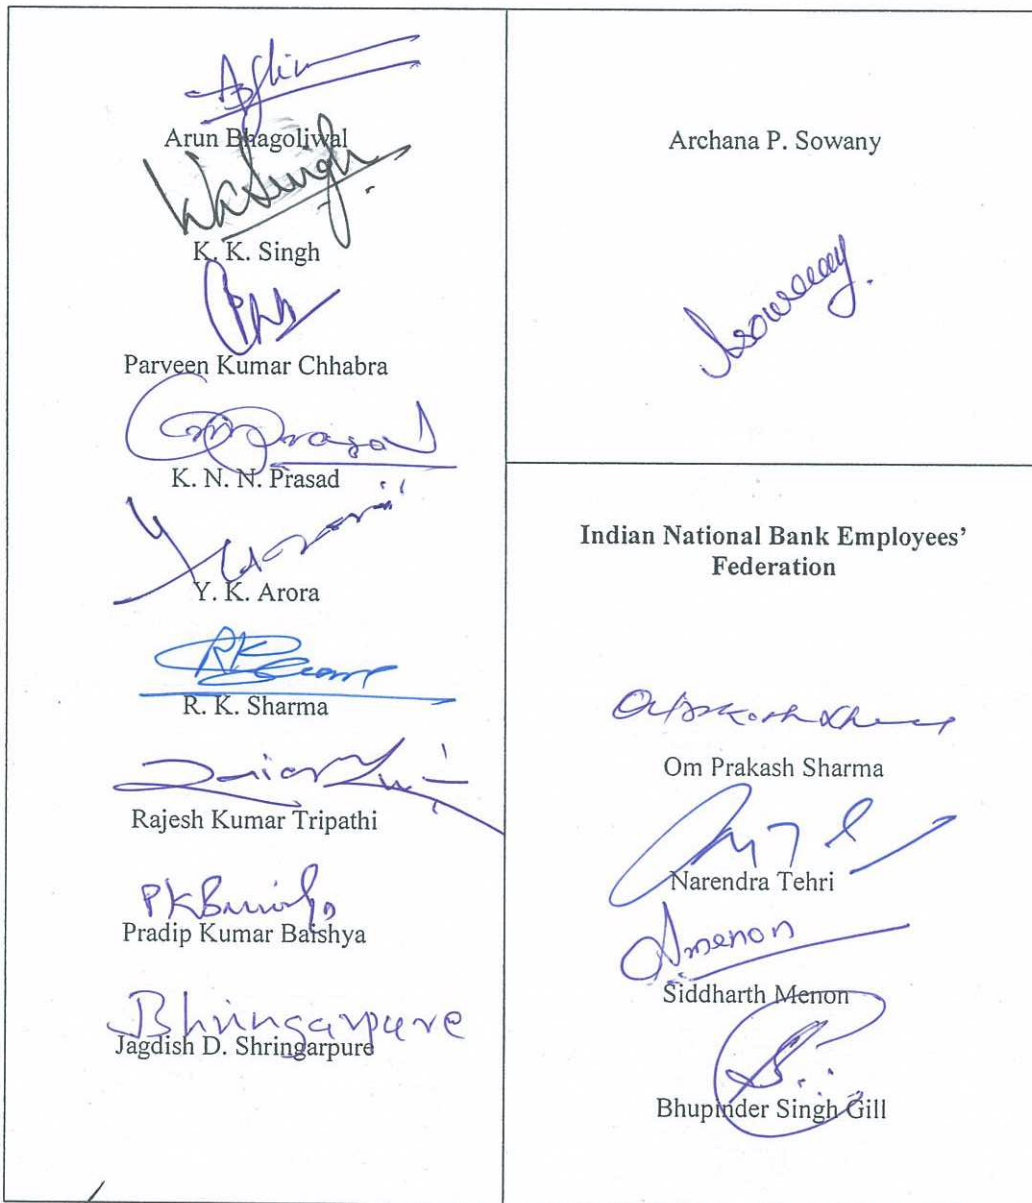 Arun Bhagoliwal
K. K. Singh
K. K. Singh
Parveen Kumar Chhabra
Prasad
K. N. N. Prasad
Y. K. Arora
R. K. Sharma
Rajesh Kumar Tripathi
Pradip Kumar Baishya
Jagdish D. Shringarpure
Archana P. Sowany
Indian National Bank Employees'
Federation
Om Prakash Sharma
Narendra Tehri
Smenon
Siddharth Menon
Bhupinder Singh Gill